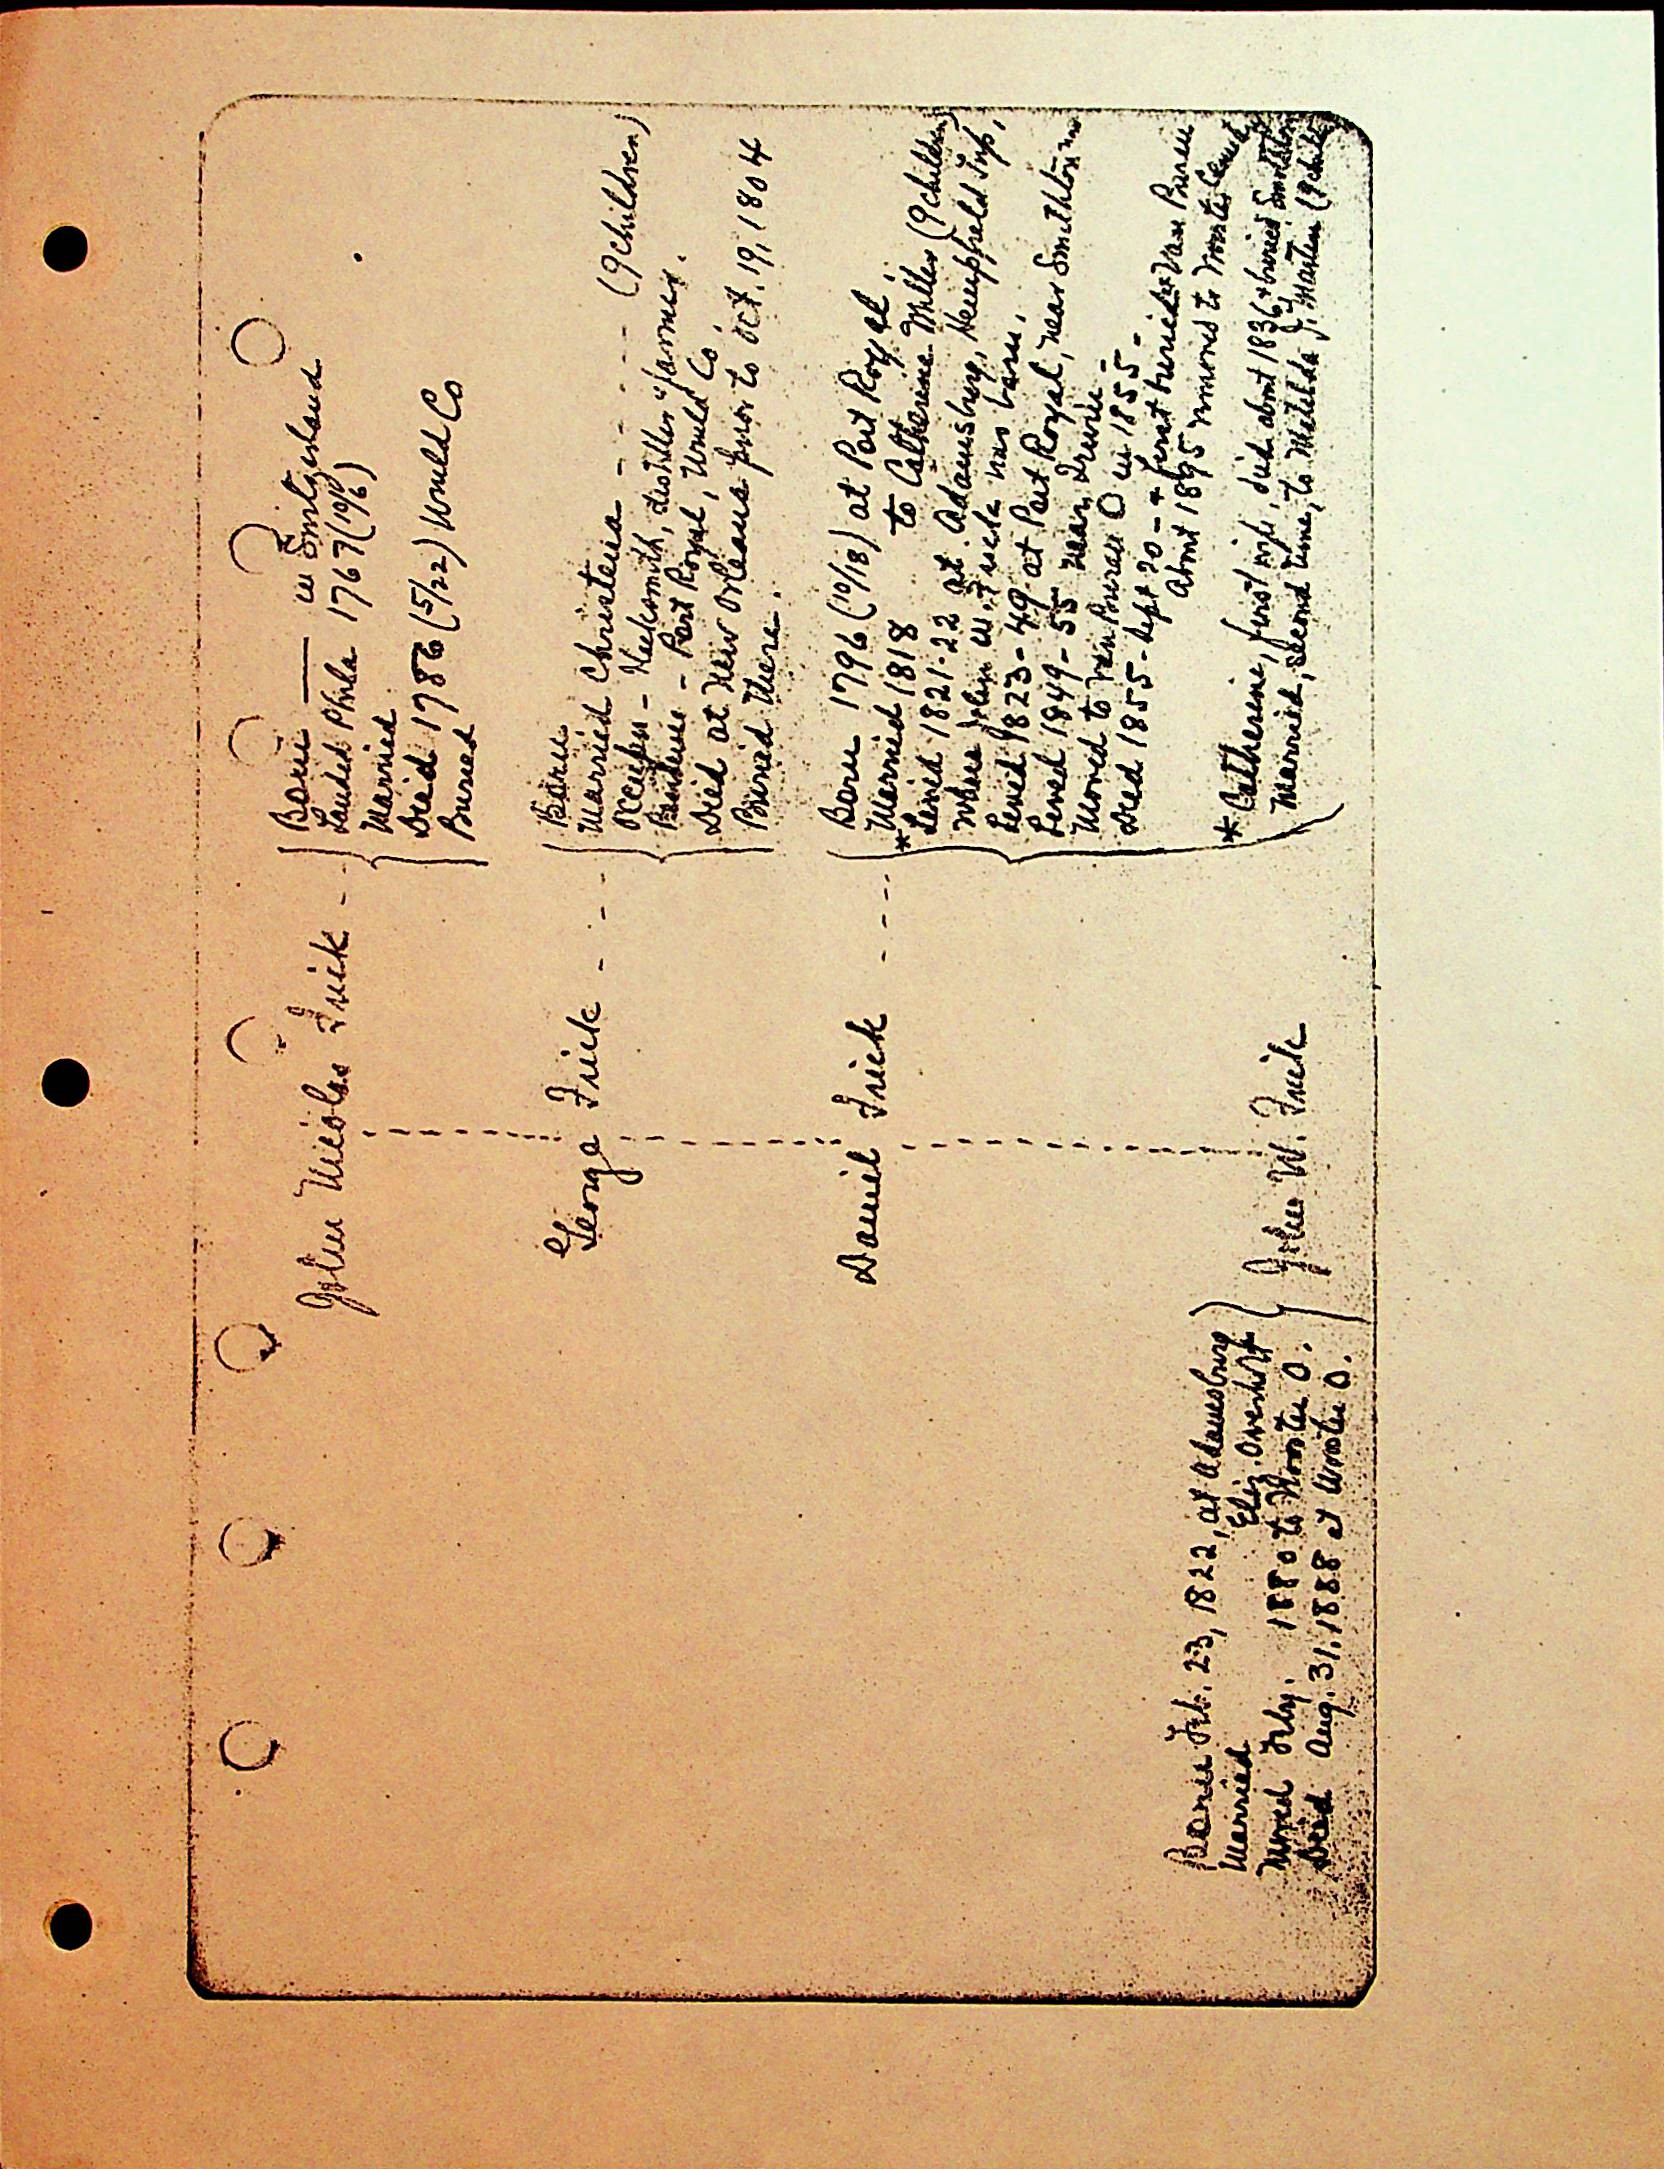 John Nicolas Frick - -
Born —— in Switzerland
Landed Phila 1767 (10/6)
Married
Died 1786 (5/22) Wmld Co
Buried
George Frick - - - -
Born
Married Christena - - - - - - (9 children)
Occupn - Nailsmith, distiller & farmer.
Residence - Port Royal, Wmld Co.
Died at New Orleans prior to Oct. 19, 1804
Buried there.
Daniel Frick - - - -
Born 1796 (10/18) at Port Royal.
Married 1818 to Catherine Miller (9 children)
* Lived 1821-22 at Adamsburg, Hempfield Twp,
where John W. Frick was born.
Lived 1823-49 at Port Royal, near Smithton
Lived 1849-55 near Irwin -
Moved to Van Buren O in 1855 -
Died 1855 - Sept 20 - & first buried at Van Buren
About 1895 removed to Wooster Cemetery
* Catherine, first wife, died about 1836 & buried Smithton
Married, second time, to Matilda J. Martin (9 child
John W. Frick
Born Feb. 23, 1822, at Adamsburg
Married Eliz. Overholt
Moved Feby. 1880 to Wooster O.
Died Aug. 31, 1888 at Wooster O.